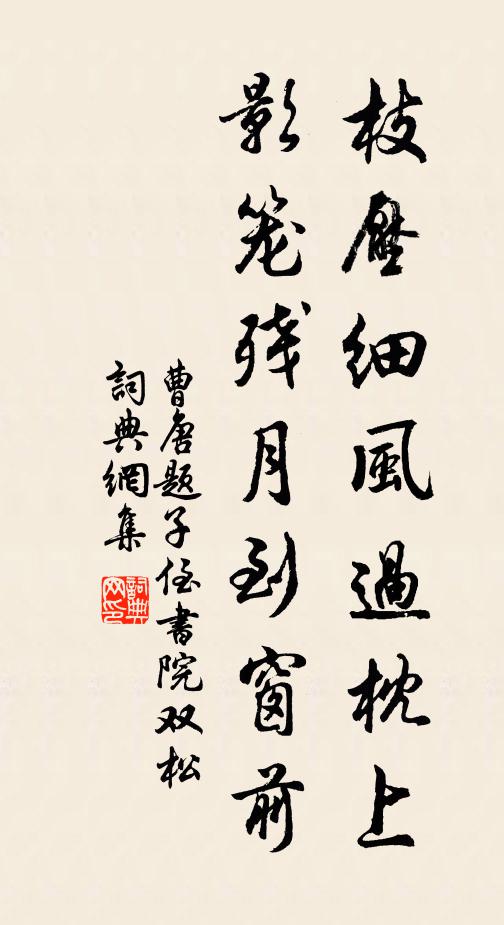 枝壓細風過枕上
影笼殘月到窗前
曹唐题子侄書院双松
詞典網集
詞典網印